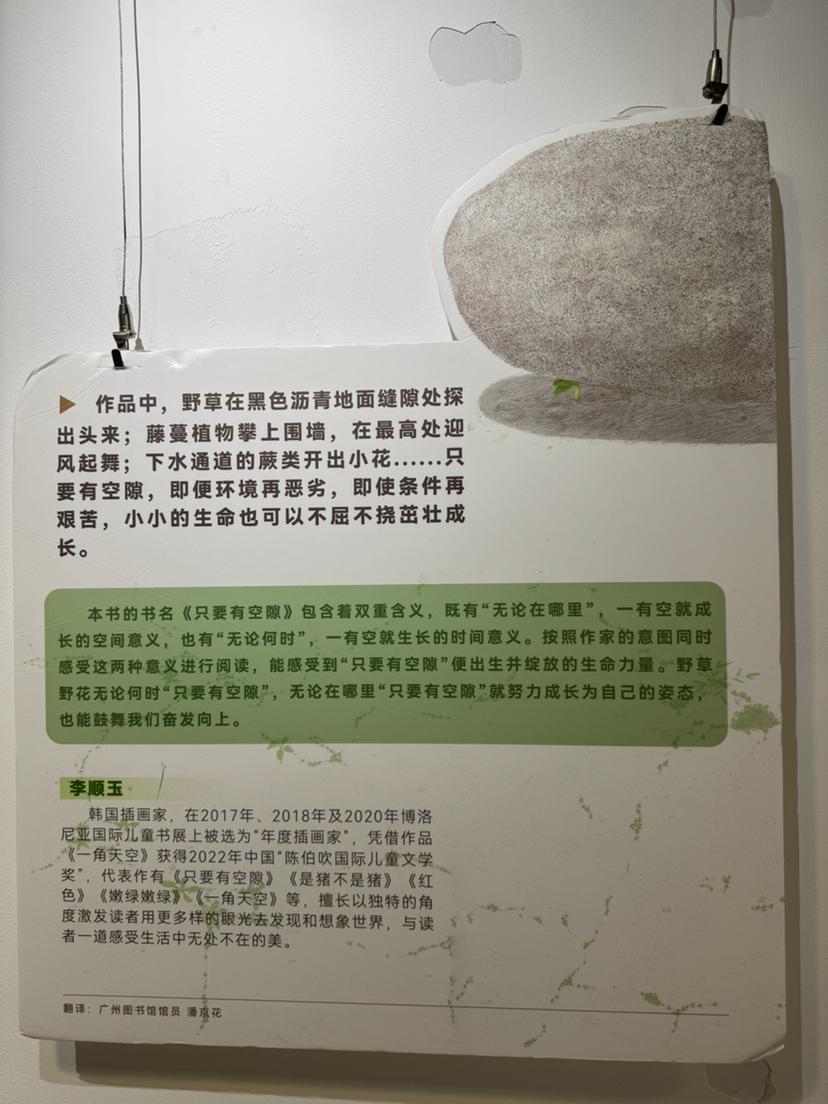 作品中，野草在黑色沥青地面缝隙处探
出头来；藤蔓植物攀上围墙，在最高处迎
风起舞；下水通道的蕨类开出小花……只
要有空隙，即便环境再恶劣，即使条件再
艰苦，小小的生命也可以不屈不挠茁壮成
长。
本书的书名《只要有空隙》包含着双重含义，既有“无论在哪里”，一有空就成
长的空间意义，也有“无论何时”，一有空就生长的时间意义。按照作家的意图同时
感受这两种意义进行阅读，能感受到“只要有空隙”便出生并绽放的生命力量。野草
野花无论何时“只要有空隙”，无论在哪里“只要有空隙”就努力成长为自己的姿态，
也能鼓舞我们奋发向上。
李顺玉
韩国插画家，在2017年、2018年及2020年博洛
尼亚国际儿童书展上被选为“年度插画家”，凭借作品
《一角天空》获得2022年中国“陈伯吹国际儿童文学
奖”，代表作有《只要有空隙》《是猪不是猪》《红
色》《嫩绿嫩绿》《一角天空》等，擅长以独特的角
度激发读者用更多样的眼光去发现和想象世界，与读
者一道感受生活中无处不在的美。
翻译：广州图书馆馆员 潘京花